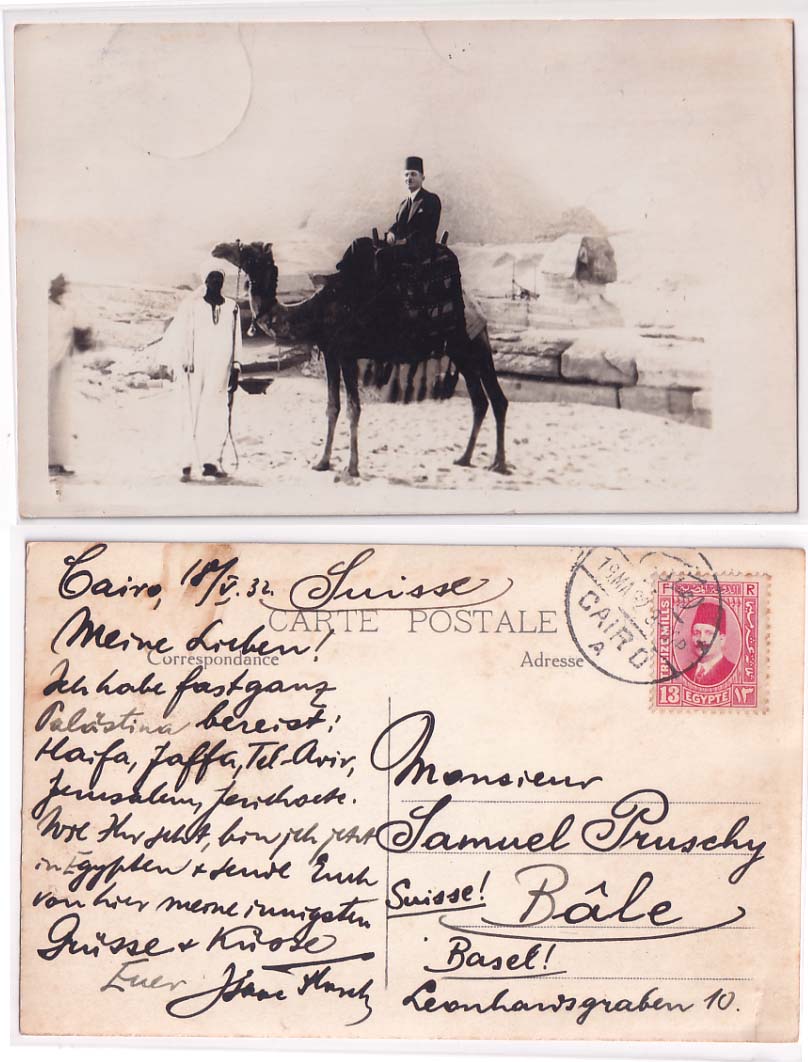 Cairo, 18/V. 32.
Suisse
CARTE POSTALE
Correspondance
Adresse
Meine Lieben!
Ich habe fast ganz
Palästina bereist:
Haifa, Jaffa, Tel-Aviv,
Jerusalem, Jericho etc.
Wie Ihr seht, bin ich jetzt
in Egypten + sende Euch
von hier meine innigsten
Grüsse + Küsse
Euer
19 MA 32
CAIRO
A
F R
TREIZE MILLS
13 EGYPTE ١٣
Monsieur
Samuel Pruschy
Suisse! Bâle
Basel!
Leonhardsgraben 10.